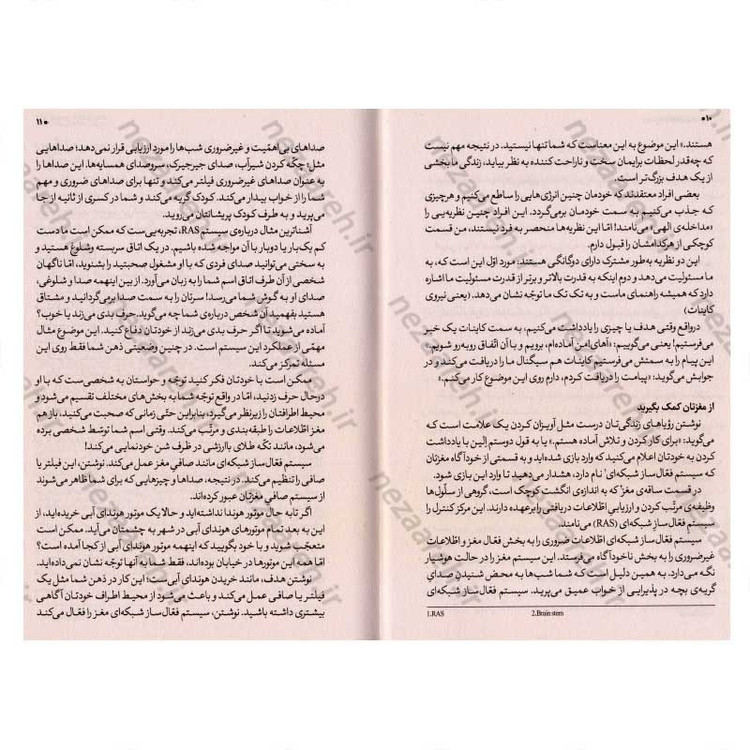 ۱۰
هستند.» این موضوع به این معناست که شما تنها نیستید. در نتیجه مهم نیست
که چه‌قدر لحظات برایمان سخت و ناراحت کننده به نظر بیاید، زندگی ما بخشی
از یک هدف بزرگ‌تر است.
بعضی افراد معتقدند که خودمان چنین انرژی‌هایی را ساطع می‌کنیم و هرچیزی
که جذب می‌کنیم به سمت خودمان برمی‌گردد. این افراد چنین نظریه‌یی را
«مداخله‌ی الهی» می‌نامند! امّا این نظریه‌ها منحصر به فرد نیستند، من قسمت
کوچکی از هرکدامشان را قبول دارم.
این دو نظریه به‌طور مشترک دارای دوگانگی هستند: مورد اوّل این است که، به
ما مسئولیت می‌دهد و دوم اینکه به قدرت بالاتر و برتر از قدرت مسئولیت ما اشاره
دارد که همیشه راهنمای ماست و به تک تک ما توجّه نشان می‌دهد. (یعنی نیروی
کاینات)
درواقع وقتی هدف یا چیزی را یادداشت می‌کنیم، به سمت کاینات یک خبر
می‌فرستیم! یعنی می‌گوییم: «آهای! من آماده‌ام. برویم و با آن اتّفاق روبه‌رو شویم.»
این پیام را به سمتش می‌فرستیم کاینات هم سیگنال ما را دریافت می‌کند و در
جوابش می‌گوید: «پیامت را دریافت کردم، دارم روی این موضوع کار می‌کنم.»
از مغزتان کمک بگیرید
نوشتن رؤیاهای زندگی‌تان درست مثل آویزان کردن یک علامت است که
می‌گوید: «برای کار کردن و تلاش آماده هستم.» یا به قول دوستم اِلین با یادداشت
کردن به خودتان اعلام می‌کنید که وارد بازی شده‌اید و به قسمتی از خودآگاه مغزتان
که سیستم فعّال‌ساز شبکه‌ای¹ نام دارد، هشدار می‌دهید تا وارد این بازی شود.
در قسمت ساقه‌ی مغز² که به اندازه‌ی انگشت کوچک است، گروهی از سلّول‌ها
وظیفه‌ی مرتّب کردن و ارزیابی اطّلاعات دریافتی را برعهده دارند. این مرکز کنترل را
سیستم فعّال‌ساز شبکه‌ای (RAS) می‌نامند.
سیستم فعّال‌ساز شبکه‌ای اطّلاعات ضروری را به بخش فعّال مغز و اطّلاعات
غیرضروری را به بخش ناخودآگاه می‌فرستد. این سیستم مغز را در حالت هوشیار
نگه می‌دارد. به همین دلیل است که شما شب‌ها به محض شنیدن صدای
گریه‌ی بچه در پذیرایی از خواب عمیق می‌پرید. سیستم فعّال‌ساز شبکه‌ای
1.RAS 2.Brain stem
۱۱
صداهای بی‌اهمّیت و غیرضروری شب‌ها را مورد ارزیابی قرار نمی‌دهد؛ صداهایی
مثل: چکّه کردن شیرآب، صدای جیرجیرک، سروصدای همسایه‌ها. این صداها را
به عنوان صداهای غیرضروری فیلتر می‌کند و تنها برای صداهای ضروری و مهم
شما را از خواب بیدار می‌کند. کودک گریه می‌کند و شما در کسری از ثانیه از جا
می‌پرید و به طرف کودک پریشانتان می‌روید.
آشناترین مثال درباره‌ی سیستم RAS، تجربه‌یی‌ست که ممکن است ما دست
کم یک‌بار یا دوبار با آن مواجه شده باشیم. در یک اتاق سربسته وشلوغ هستید و
به سختی می‌توانید صدای فردی که با او مشغول صحبتید را بشنوید، امّا ناگهان
شخصی از آن طرف اتاق اسم شما را به زبان می‌آورد. از بین اینهمه صدا و شلوغی،
صدای او به گوش شما می‌رسد! سرتان را به سمت صدا برمی‌گردانید و مشتاق
هستید بفهمید آن شخص درباره‌ی شما چه می‌گوید. حرف بدی می‌زند یا خوب؟
آماده می‌شوید تا اگر حرف بدی می‌زند از خودتان دفاع کنید. این موضوع مثال
مهمّی از عملکرد این سیستم است. در چنین وضعیتی ذهن شما فقط روی این
مسئله تمرکز می‌کند.
ممکن است با خودتان فکر کنید توجّه و حواستان به شخصی‌ست که با او
درحال حرف زدنید، امّا در واقع توجّه شما به بخش‌های مختلف تقسیم می‌شود و
محیط اطرافتان را زیرنظر می‌گیرد، بنابراین حتّی زمانی که صحبت می‌کنید، باز هم
مغز اطّلاعات را طبقه‌بندی و مرتّب می‌کند. وقتی اسم شما توسّط شخصی برده
می‌شود، مانند تکّه طلای باارزشی در ظرف شن خودنمایی می‌کند!
سیستم فعّال‌ساز شبکه‌ای مانند صافی مغز عمل می‌کند. نوشتن، این فیلتر یا
صافی را تنظیم می‌کند. در نتیجه، صداها و چیزهایی که برای شما ظاهر می‌شوند
از سیستم صافی مغزتان عبور کرده‌اند.
اگر تابه حال موتور هوندا نداشته‌اید و حالا یک موتور هوندای آبی خریده‌اید، از
این به بعد تمام موتورهای هوندای آبی در شهر به چشمتان می‌آید. ممکن است
متعجّب شوید و با خود بگویید که اینهمه موتور هوندای آبی از کجا آمده است؟
امّا همه این موتورها در خیابان بوده‌اند، فقط شما به آنها توجّه نشان نمی‌داده‌اید.
نوشتن هدف، مانند خریدن هوندای آبی‌ست؛ این کار در ذهن شما مثل یک
فیلتر یا صافی عمل می‌کند و باعث می‌شود از محیط اطراف خودتان آگاهی
بیشتری داشته باشید. نوشتن، سیستم فعّال‌ساز شبکه‌ای مغز را فعّال می‌کند
nezaareh.ir